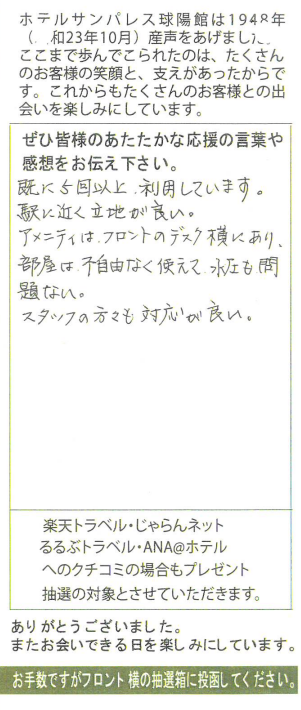 ホテルサンパレス球陽館は1948年
(昭和23年10月）産声をあげました。
ここまで歩んでこられたのは、たくさん
のお客様の笑顔と、支えがあったからで
す。これからもたくさんのお客様との出
会いを楽しみにしています。
ぜひ皆様のあたたかな応援の言葉や
感想をお伝え下さい。
既に5回以上利用しています。
駅に近く立地が良い。
アメニティは、フロントのデスク横にあり、
部屋は、不自由なく使えて、水圧も問
題ない。
スタッフの方々も対応が良い。
楽天トラベル・じゃらんネット
るるぶトラベル・ANA@ホテル
へのクチコミの場合もプレゼント
抽選の対象とさせていただきます。
ありがとうございました。
またお会いできる日を楽しみにしています。
お手数ですがフロント横の抽選箱に投函してください。